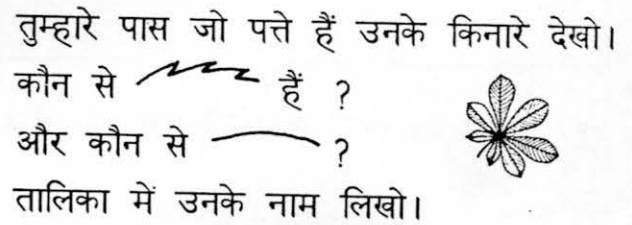 तुम्हारे पास जो पत्ते हैं उनके किनारे देखो।
कौन से हैं ?
और कौन से ?
तालिका में उनके नाम लिखो।